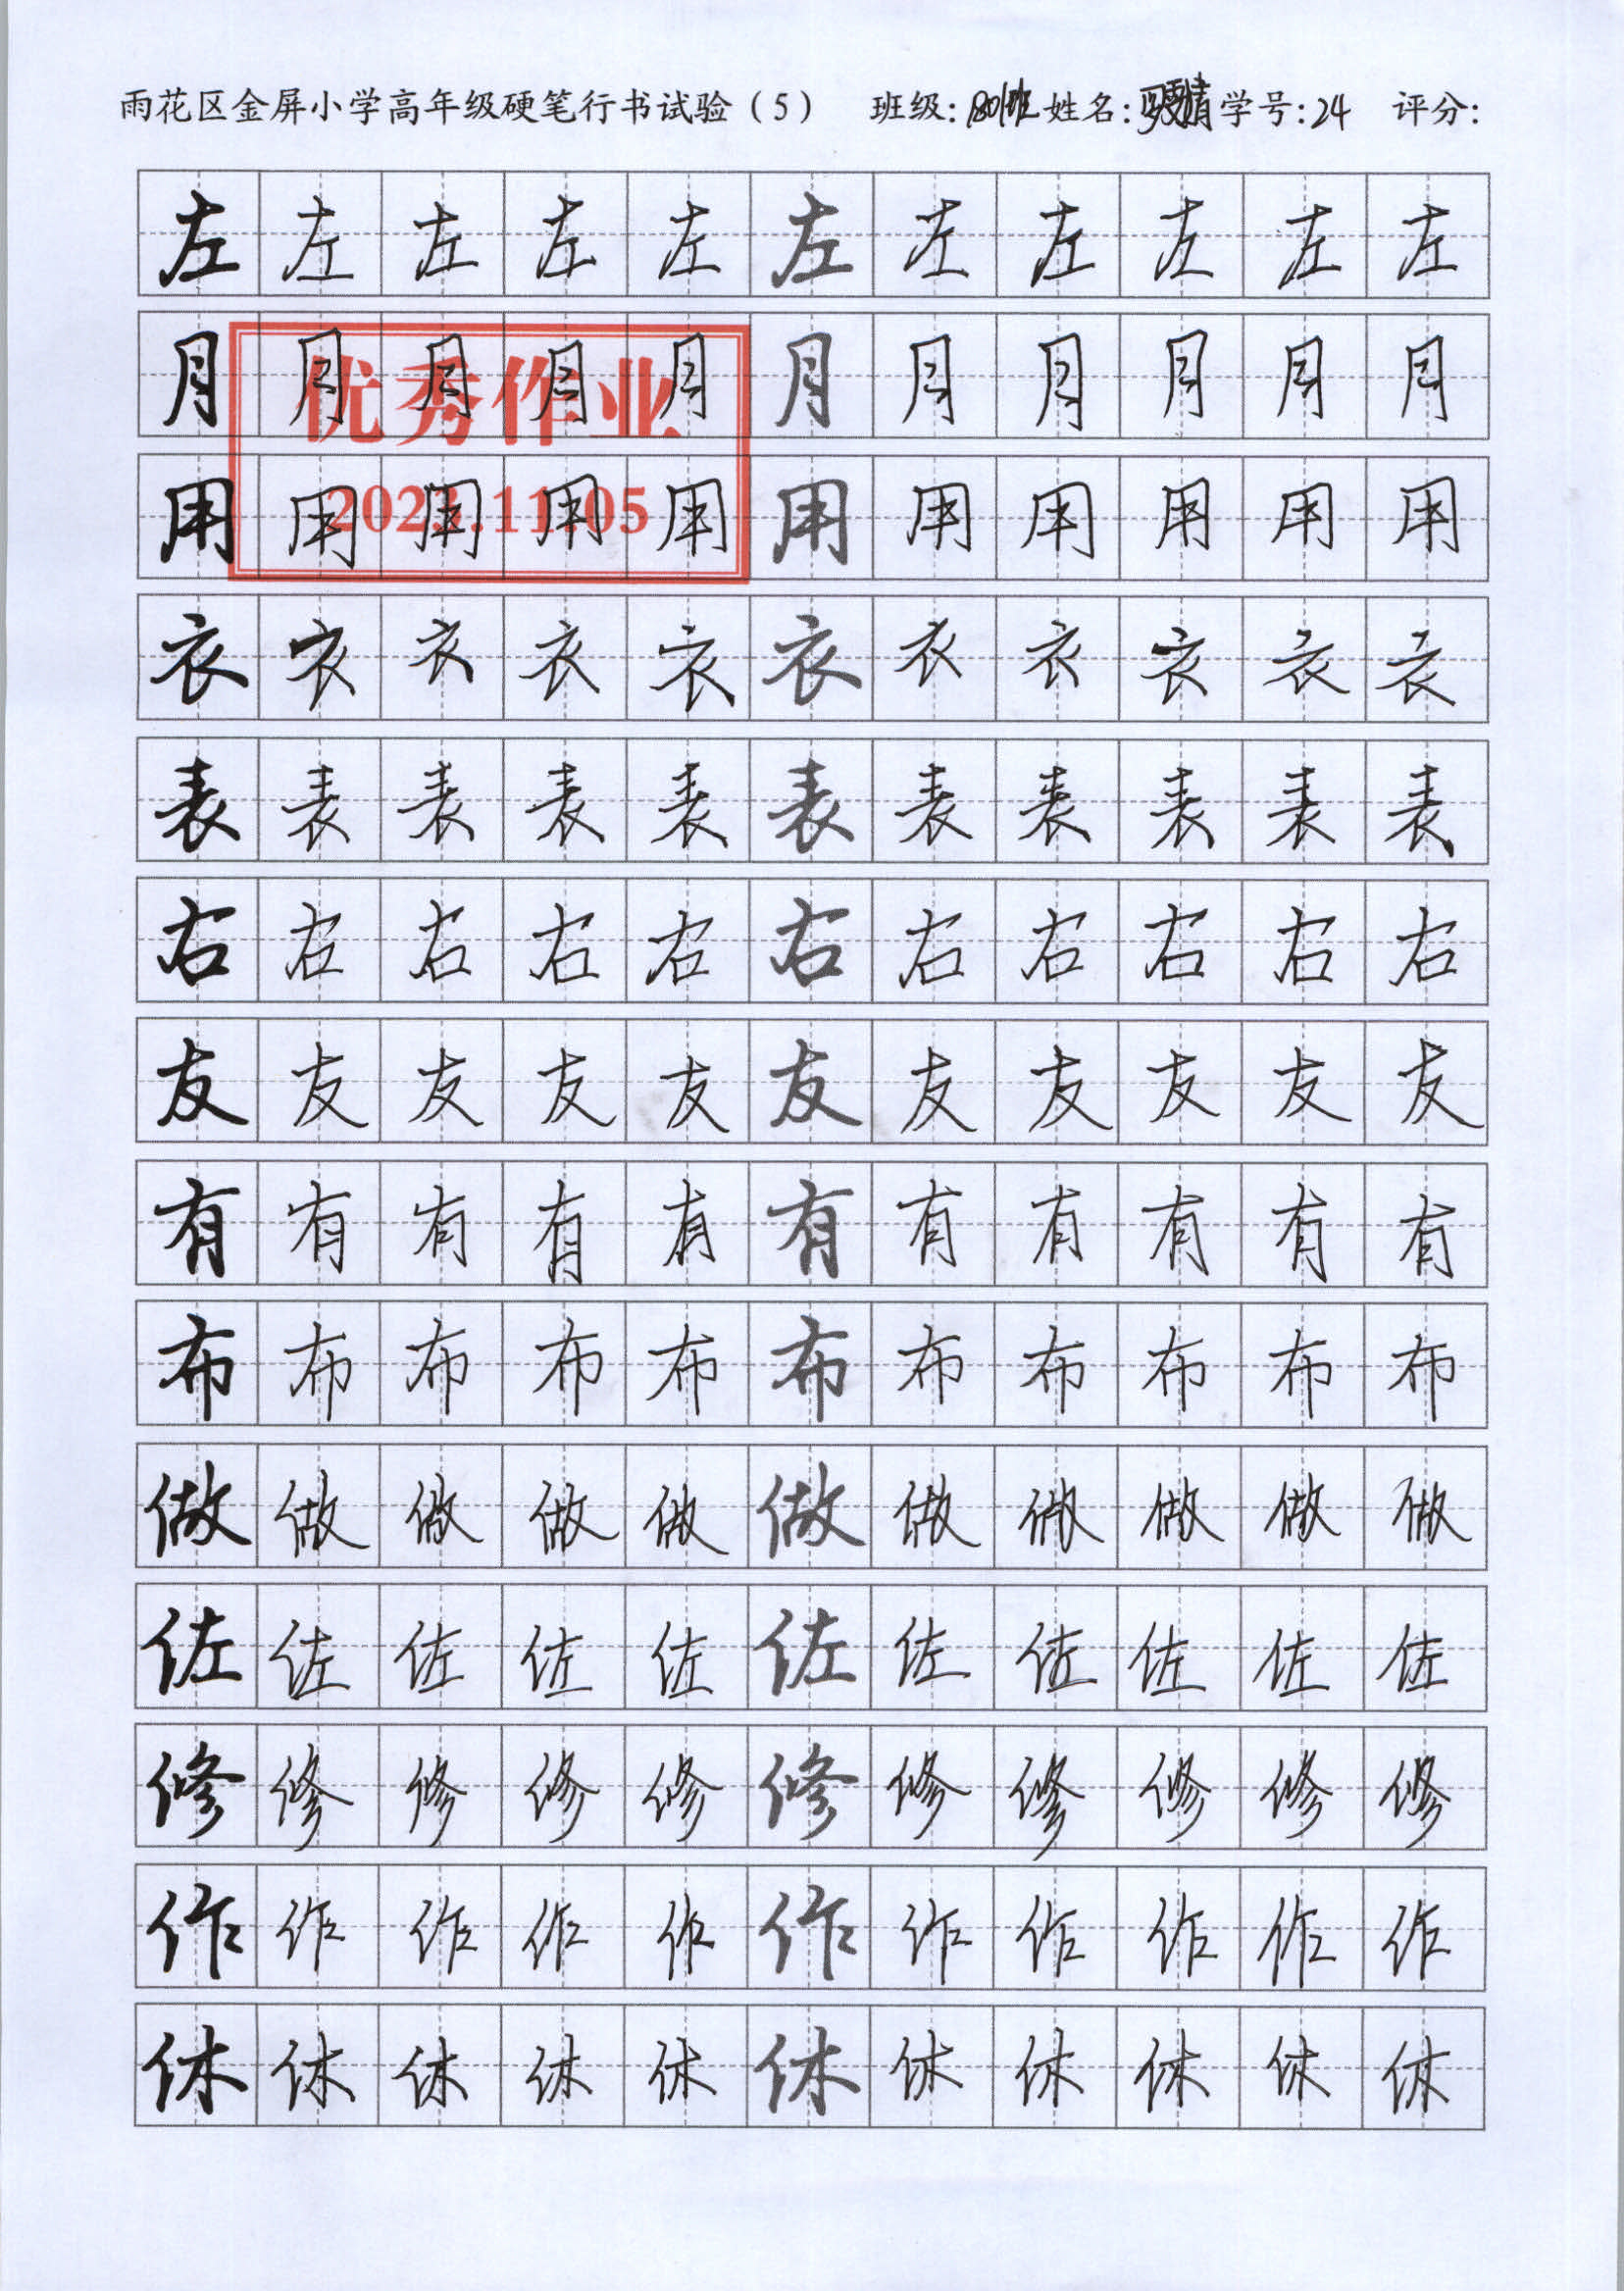 雨花区金屏小学高年级硬笔行书试验（5） 班级：1801班 姓名： 学号：24 评分：
左左左左左左左左左左左
月月月月月月月月月月月
优秀作业
用用用用用用用用用用用
2023.11.05
衣衣衣衣衣衣衣衣衣衣衣
表表表表表表表表表表表
右右右右右右右右右右右
友友友友友友友友友友友
有有有有有有有有有有有
布布布布布布布布布布布
做做做做做做做做做做做
佐佐佐佐佐佐佐佐佐佐佐
修修修修修修修修修修修
作作作作作作作作作作作
休休休休休休休休休休休